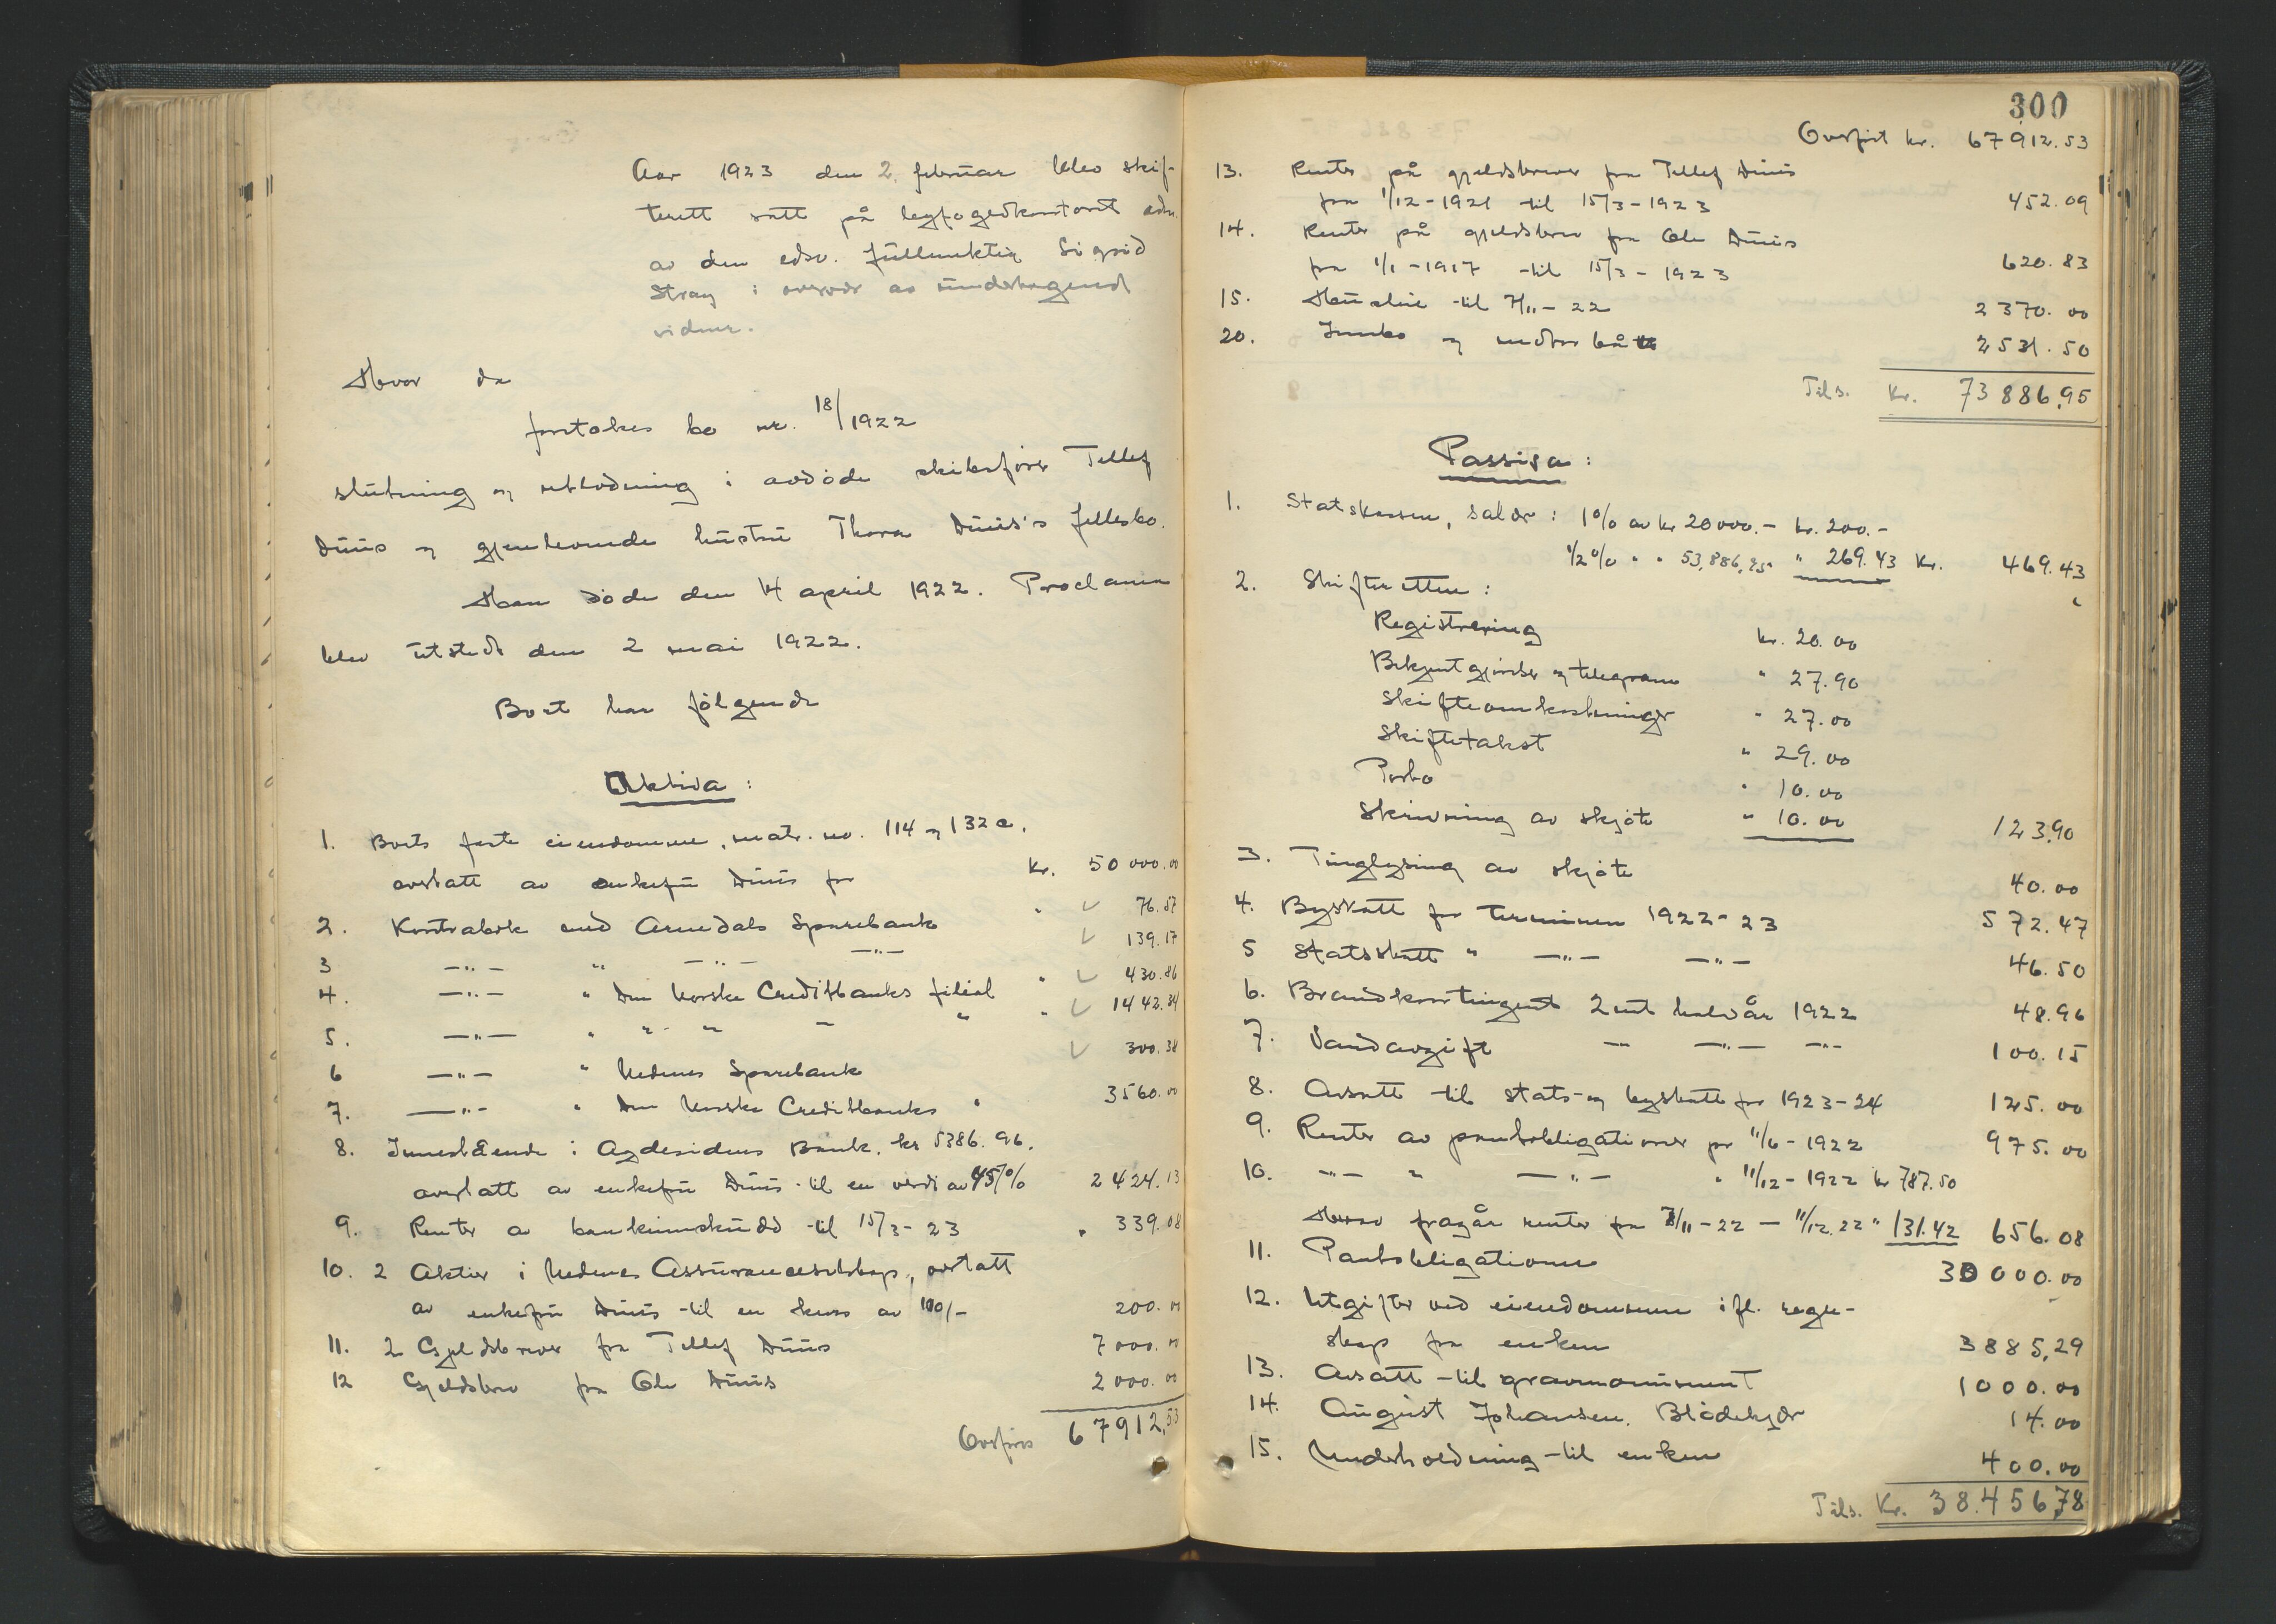 Aar 1923 den 2. februar blev skif-
terett satt på byfogedkontoret edm.
av den edsv. fullmektig Sigrid
Stray i overvær av undertegnede
vidner.
Hvor da
foretokes bo nr. 18/1922
slutning og utlodning i avdöde skibsförer Tellef
Duus og gjenlevende hustru Thora Duus's fellesbo.
Han döde den 14 april 1922. Proclama
blev utstedt den 2 mai 1922.
Boet har fölgende
Aktiva:
1. Boets faste eiendomme, matr. no. 114 og 132 a,
overtatt av enkefru Duus for Kr. 50 000.00
2. Kontrabok med Arendals Sparebank " 76.57
3 —"— " —"— —"— 139.17
4. —"— " Den Norske Creditbanks filial " 430.86
5. —"— " " " — " " 1442.34
6 —"— " Nedenes Sparebank 300.38
7. —"— " Den Norske Creditbanks " 3560.00
8. Innestående i Agdesidens Bank. kr 5386.96.
overtatt av enkefru Duus til en verdi av 45% 2424.13
9. Renter av bankinnskudd til 15/3-23 " 339.08
10. 2 Aktier i Nedenes Assuranceselskap, overtatt
av enkefru Duus til en kurs av 100/- 200.00
11. 2 Gjeldsbrever fra Tellef Duus 7000.00
12 Gjeldsbrev fra Ole Duus 2000.00
Overföres 67912,53
300
Overfört kr. 67912.53
13. Renter på gjeldsbrever fra Tellef Duus
fra 1/12-1921 til 15/3-1923 452.09
14. Renter på gjeldsbrev fra Ole Duus
fra 1/1-1917 til 15/3-1923 620.83
15. Husleie til 7/11-22 2370.00
20. Innbo og 2531.50
Tils. Kr. 73886,95
Passiva:
1. Statskassen, Salær: 1% av kr 20000.- kr. 200.-
1/2% " " 53,886,95 " 269.43 Kr. 469.43
2. Skifteretten:
Registrering kr. 20.00
Bekjentgjörelser og telegram " 27.90
Skifteomkostninger " 27.00
Skiftetakst " 29.00
Porto " 10.00
Skrivning av skjöte " 10.00 123,90
3. Tinglysing av skjöte 40.00
4. Byskatt for terminen 1922-23 572.47
5 Statsskatt " —"— —"— 46.50
6. Brandkontingent 2net halvår 1922 48.96
7. Vandavgift — —"— —"— 100.15
8. Avsatt til stats- og byskatt for 1923-24 125.00
9. Renter av pantobligationer pr 11/6-1922 975.00
10. —"— " —"— " 11/12-1922 kr 787.50
Herav fragår renter fra 7/11-22 — 11/12.22 " 131.42 656.08
11. Pantobligationer 30000.00
12. Utgifter ved eiendommene ifl. regn-
skap fra enken 3885,29
13. Avsatt til gravmonument 1000.00
14. August Johansen. Blödekjær 14.00
15. Underholdning til enken 400.00
Tils. Kr. 38.456,78